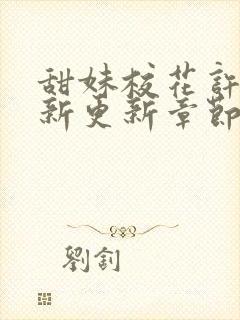 甜妹校花許
新更新章節
劉釗